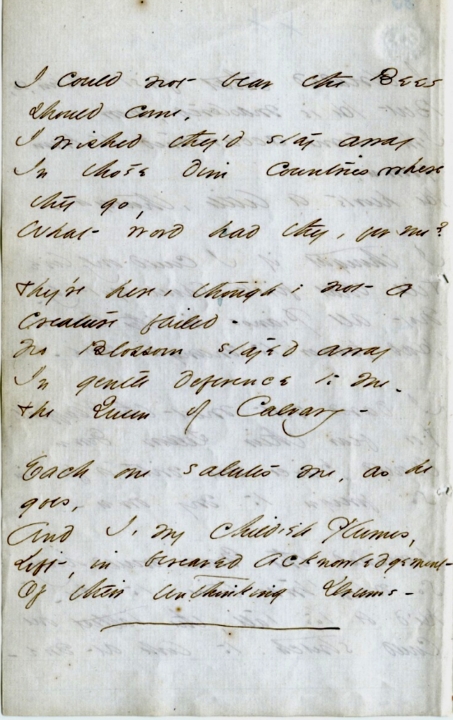 I could not bear the Bees
should come,
I wished they'd stay away
In those dim Countries where
they go,
What word had they, for me?
They're here, though; not a
creature failed -
No Blossom stayed away
In gentle deference to me -
The Queen of Calvary -
Each one salutes me, as he
goes,
And I, my childish Plumes,
Lift, in bereaved acknowledgement
Of their unthinking Drums -